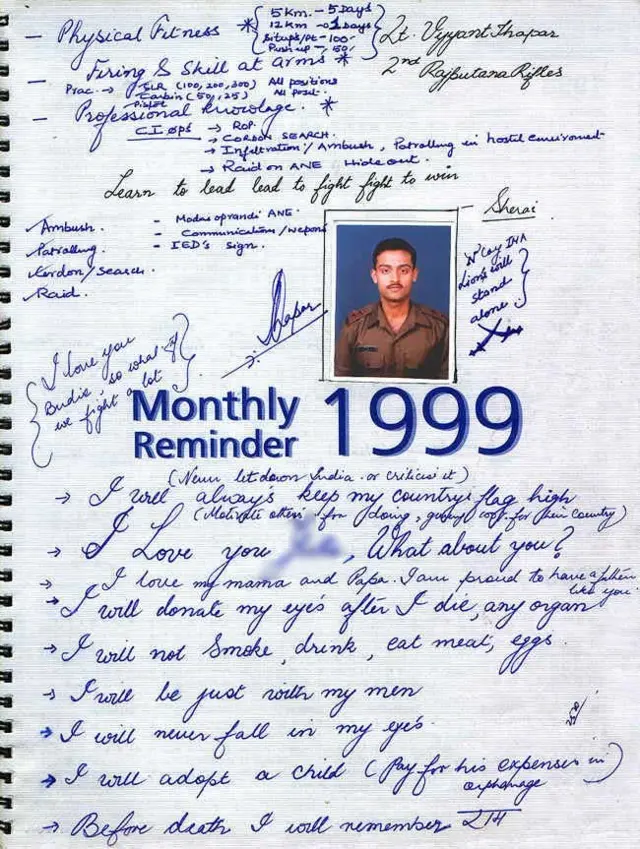 5 Km. - 5 Days
12 Km - 02 Days
Situps/pt - 100
Push up - 50
- Physical Fitness *
Lt. Vijyant Thapar
2nd Rajputana Rifles
- Firing & Skill at arms *
Prac. → SLR (100, 200, 300) All positions
Carbin (50, 25) All posit.
Pistol
- Professional knowlage. *
C.I. Ops → ROP.
→ CORDON SEARCH.
→ Infiltration/Ambush, Patralling in hostil enviroment
→ Raid on ANE Hide out.
Learn to lead lead to fight fight to win
- Sherai
Ambush.
Patralling.
Kordon/Search.
Raid.
- Modus oprandi ANE
- Communications/weapons
- IED's Sign.
'N' Coy IMA
Lions will
stand
alone
Thapar
I love you
Budie, so what if
we fight a lot
Monthly
Reminder 1999
(Never let down India or criticise it)
→ I will always keep my country's flag high
(Motivate others for doing, good for their country)
→ I Love you , What about you?
→ I love my mama and Papa. I am proud to have a father
like you
→ I will donate my eye's after I die, any organ
→ I will not Smoke, drink, eat meat, eggs.
→ I will be just with my men
→ I will never fall in my eye's.
→ I will adopt a child (Pay for his expenses in
orphanage)
→ Before death I will remember